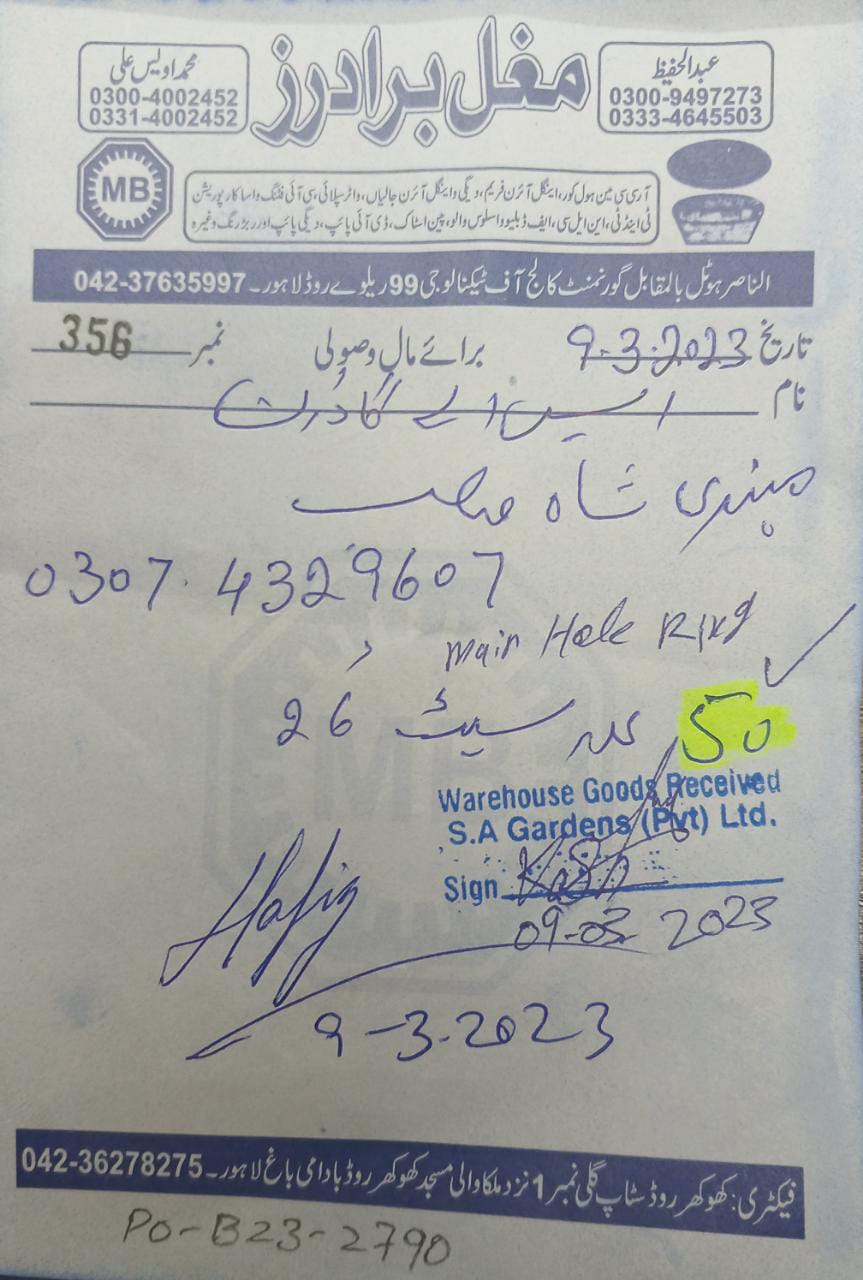 مغل برادرز
محمد اویس علی
0300-4002452
0331-4002452
عبدالحفیظ
0300-9497273
0333-4645503
MB
آر سی سی مین ہول کور، اینگل آئرن فریم، دیگی و اینگل آئرن جالیاں، واٹر سپلائی، سی آئی فٹنگ واسا کارپوریشن
ٹی اینڈ ٹی، این ایل سی، ایف ڈبلیو و اسلوس والو، پین اسٹاک، ڈی آئی پائپ، دیگی پائپ اور ربڑ رنگ وغیرہ
الناصر ہوٹل بالمقابل گورنمنٹ کالج آف ٹیکنالوجی 99 ریلوے روڈ لاہور۔ 042-37635997
تاریخ 9-3-2023 برائے مال وصولی نمبر 356
نام ایس اے گارڈن
مہندی شاہ صاحب
0307-4329607
Main Hole Ring
50 عدد سیٹ 26
Warehouse Goods Received
S.A Gardens (Pvt) Ltd.
Sign
09-03-2023
Hafiz
9-3-2023
فیکٹری: کھوکھر روڈ سٹاپ گلی نمبر 1 نزد ملکا والی مسجد کھوکھر روڈ بادامی باغ لاہور۔ 042-36278275
PO-B23-2790